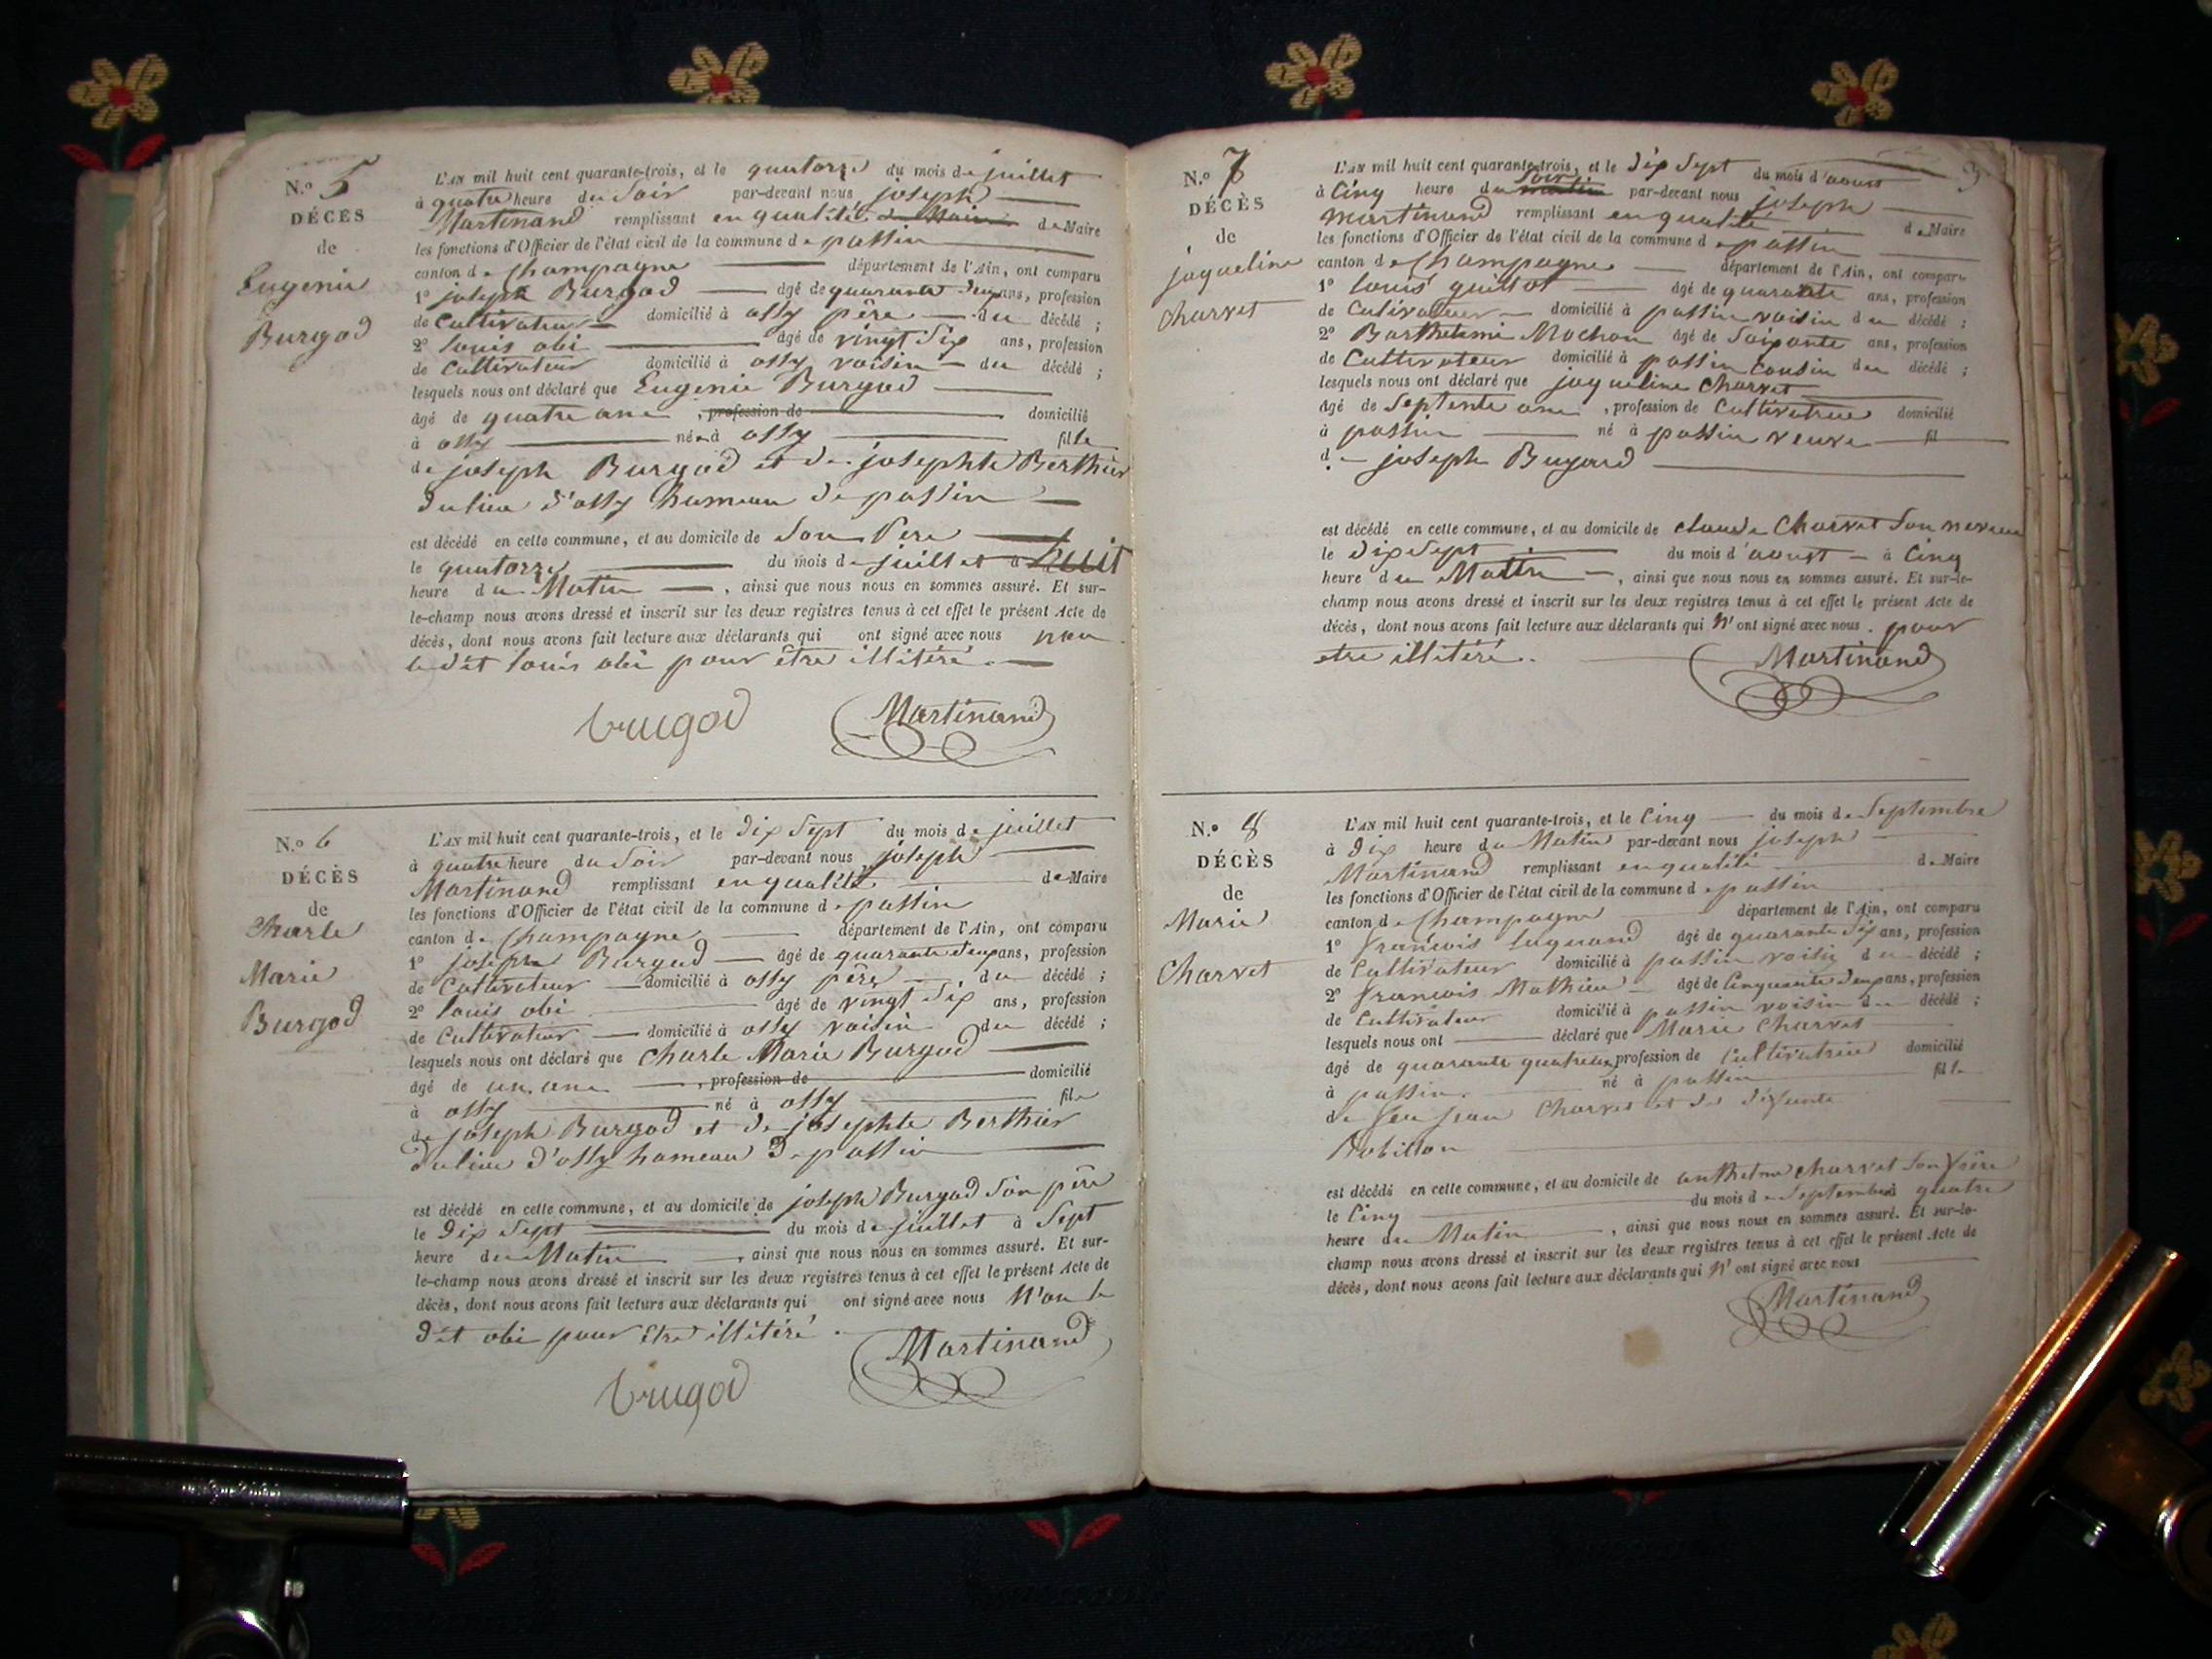 N.º 5
DÉCÈS
de
Eugenie
Burgod
L'AN mil huit cent quarante-trois, et le quatorze du mois de juillet
à quatre heure du Soir par-devant nous joseph
Martinand remplissant en qualité de Maire
les fonctions d'Officier de l'état civil de la commune de passin
canton de Champagne département de l'Ain, ont comparu
1º joseph Burgod âgé de quarante deux ans, profession
de Cultivateur domicilié à ossy père du décédé ;
2º louis obi âgé de vingt Six ans, profession
de Cultivateur domicilié à ossy voisin du décédé ;
lesquels nous ont déclaré que Eugenie Burgod
âgé de quatre ans , profession de domicilié
à ossy née à ossy fille
de joseph Burgod et de josephte Berthier
du lieu d'ossy hameau de passin
est décédé en cette commune, et au domicile de Son Père
le quatorze du mois de juillet à huit
heure du Matin , ainsi que nous nous en sommes assuré. Et sur-
le-champ nous avons dressé et inscrit sur les deux registres tenus à cet effet le présent Acte de
décès, dont nous avons fait lecture aux déclarants qui ont signé avec nous non
le dit louis obi pour être illitéré.
brugod Martinand
N.º 6
DÉCÈS
de
Charle
Marie
Burgod
L'AN mil huit cent quarante-trois, et le dix Sept du mois de juillet
à quatre heure du Soir par-devant nous joseph
Martinand remplissant en qualité de Maire
les fonctions d'Officier de l'état civil de la commune de passin
canton de Champagne département de l'Ain, ont comparu
1º joseph Burgod âgé de quarante deux ans, profession
de Cultivateur domicilié à ossy père du décédé ;
2º louis obi âgé de vingt Six ans, profession
de Cultivateur domicilié à ossy voisin du décédé ;
lesquels nous ont déclaré que Charle Marie Burgod
âgé de un an , profession de domicilié
à ossy né à ossy fils
de joseph Burgod et de josephte Berthier
du lieu d'ossy hameau de passin
est décédé en cette commune, et au domicile de joseph Burgod Son père
le dix Sept du mois de juillet à Sept
heure du Matin , ainsi que nous nous en sommes assuré. Et sur-
le-champ nous avons dressé et inscrit sur les deux registres tenus à cet effet le présent Acte de
décès, dont nous avons fait lecture aux déclarants qui ont signé avec nous N'on le
dit obi pour être illitéré.
brugod Martinand
3
N.º 7
DÉCÈS
de
jaqueline
Charvet
L'AN mil huit cent quarante-trois, et le dix Sept du mois d'aoust
à Cinq heure du matin Soir par-devant nous joseph
Martinand remplissant en qualité de Maire
les fonctions d'Officier de l'état civil de la commune de passin
canton de Champagne département de l'Ain, ont comparu
1º louis guillot âgé de quarante ans, profession
de Cultivateur domicilié à passin voisin du décédé ;
2º Barthelemi Mochon âgé de Soixante ans, profession
de Cultivateur domicilié à passin Cousin du décédé ;
lesquels nous ont déclaré que jaqueline Charvet
âgé de Septente ans , profession de Cultivatrice domicilié
à passin né à passin veuve fil
de joseph Bugard
est décédé en cette commune, et au domicile de claude Charvet Son neveu
le dix Sept du mois d'aoust à Cinq
heure du Matin , ainsi que nous nous en sommes assuré. Et sur-le-
champ nous avons dressé et inscrit sur les deux registres tenus à cet effet le présent Acte de
décès, dont nous avons fait lecture aux déclarants qui N'ont signé avec nous. pour
etre illitéré.
Martinand
N.º 8
DÉCÈS
de
Marie
Charvet
L'AN mil huit cent quarante-trois, et le Cinq du mois de Septembre
à Dix heure du Matin par-devant nous joseph
Martinand remplissant en qualité de Maire
les fonctions d'Officier de l'état civil de la commune de passin
canton de Champagne département de l'Ain, ont comparu
1º François âgé de quarante Six ans, profession
de Cultivateur domicilié à passin voisin du décédé ;
2º François Mathieu âgé de Cinquante deux ans, profession
de Cultivateur domicilié à passin voisin du décédé ;
lesquels nous ont déclaré que Marie Charvet
âgé de quarante quatre ans, profession de Cultivatrice domicilié
à passin né à passin fille
de feu jean Charvet et de défunte
Robillon
est décédé en cette commune, et au domicile de anthelme Charvet Son frère
le Cinq du mois de Septembre à quatre
heure du Matin , ainsi que nous nous en sommes assuré. Et sur-le-
champ nous avons dressé et inscrit sur les deux registres tenus à cet effet le présent Acte de
décès, dont nous avons fait lecture aux déclarants qui N'ont signé avec nous
Martinand